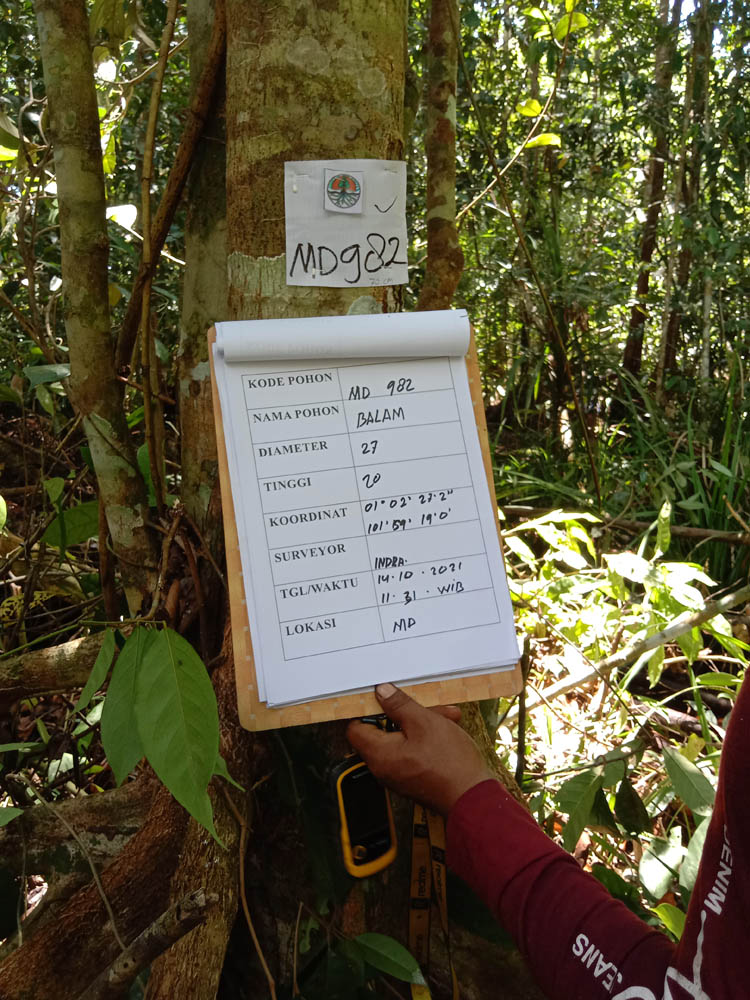 MD982
70 cm
KODE POHON MD 982
NAMA POHON BALAM
DIAMETER 27
TINGGI 20
KOORDINAT 01° 02' 27.2"
101° 59' 19.0'
SURVEYOR INDRA.
TGL/WAKTU 14.10.2021
11.31.WIB
LOKASI MD
DENIM
JEANS